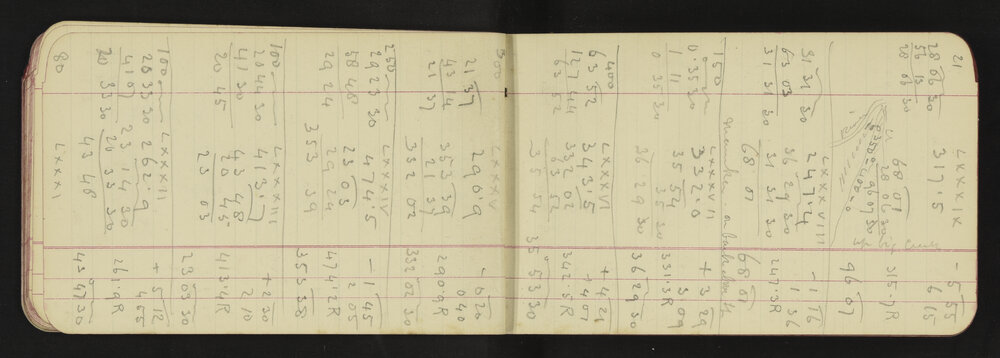 21 LXXXIX - 5 55
28 06 30 317.5 6 15
56 13
28 03 30
68 07 315.5R
28 06 30
96 07 30 96 07
LXXXVIII - 1 16
31 31 30 247.4 1 36
63 03 36 29 30 247.3R
31 31 30 31 31 30
68 07 68 07
150 LXXXVII + 3 29
0.35 30 332.0 3 09
1 11 35 54 331.3R
0 35 30 35 30
36 29 30 36 29 30
400 LXXXVI + 4 21
63 52 343.5 + 4 07
127 44 332 02 342.5R
63 52 63 52
35 54 35 53 30
300 290.9 - 0 20
21 37 0 40
43 14 353 39 290.9R
21 37 21 37
332 02 332 02 30
250 LXXXIV - 1 45
29 23 30 474.5 2 05
58 48 25 03 474.2R
29 24 29 24
353 39 353 38
100 LXXXIII + 2 30
20 44 30 413.7 2 10
41 30 43 48 413.4R
20 45 20 45
23 03 23 03 30
100 LXXXII + 5 12
20 33 30 262.9 4 55
41 07 23 14 30 261.9R
20 33 30 20 33 30
43 48 43 47 30
80 LXXXI